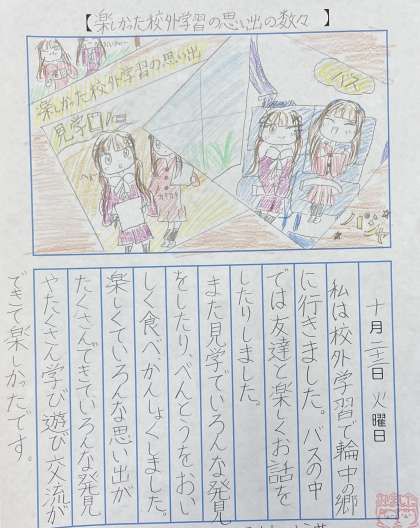 【楽しかった校外学習の思い出の数々 】
楽しかった校外学習の思い出
見学中
バス
十月二十三日 火曜日
私は校外学習で輪中の郷
に行きました。バスの中
では友達と楽しくお話を
したりしました。
また見学でいろんな発見
をしたり、べんとうをおい
しく食べ、かんしょくしました。
楽しくていろんな思い出が
たくさんできていろんな発見
やたくさん学び遊び交流が
できて楽しかったです。